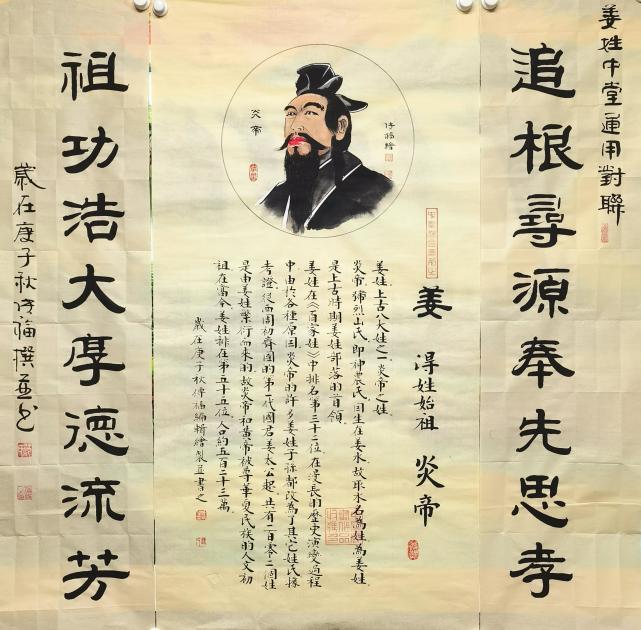 姜姓中堂通用對聯
追根尋源奉先思孝
姜 得姓始祖 炎帝
炎帝
傳福繪
姜姓,上古八大姓之一,炎帝之姓。
炎帝,號烈山氏,即神農氏,因生在姜水,故取水名為姓,為姜姓。
是上古時期姜姓部落的首領。
姜姓在《百家姓》中排名第三十二位。在漫長的歷史演變過程
中由於各種原因,炎帝的許多姜姓子孫都改為了其它姓氏,據
考證,從西周初齊國的第一代國君姜太公起,共有二百零二個姓
是由姜姓業衍而來的,故炎帝和黃帝被尊華夏民族的人文初
祖。在當今,姜姓排在第五十五位,人口約五百二十三萬。
歲在庚子秋傳福編輯繪製並書之
祖功浩大厚德流芳
歲在庚子秋傳福撰並書